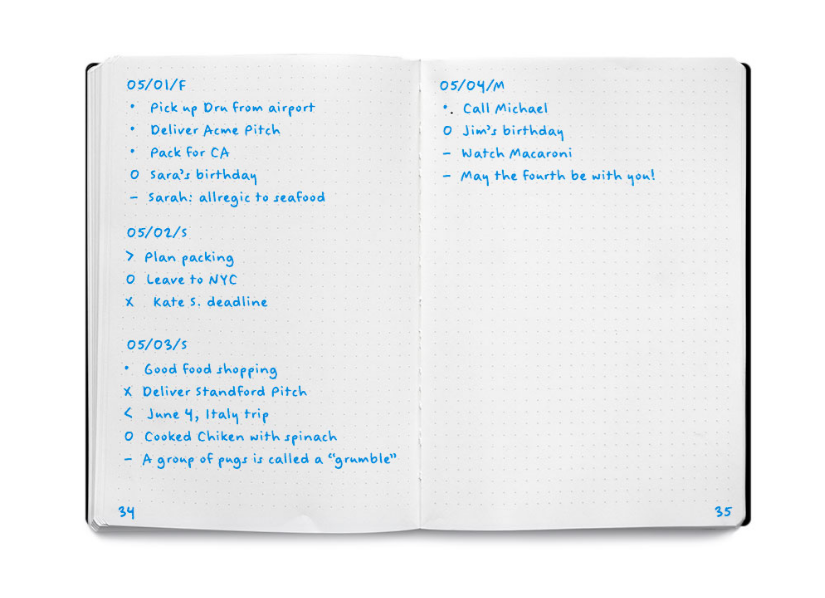 05/01/F
• Pick up Dru from airport
• Deliver Acme Pitch
• Pack for CA
O Sara's birthday
– Sarah: allregic to seafood
05/02/S
> Plan packing
O Leave to NYC
x Kate S. deadline
05/03/S
• Good food shopping
x Deliver Standford Pitch
< June 4, Italy trip
O Cooked Chiken with spinach
– A group of pugs is called a "grumble"
34
05/04/M
•. Call Michael
O Jim's birthday
– Watch Macaroni
– May the fourth be with you!
35